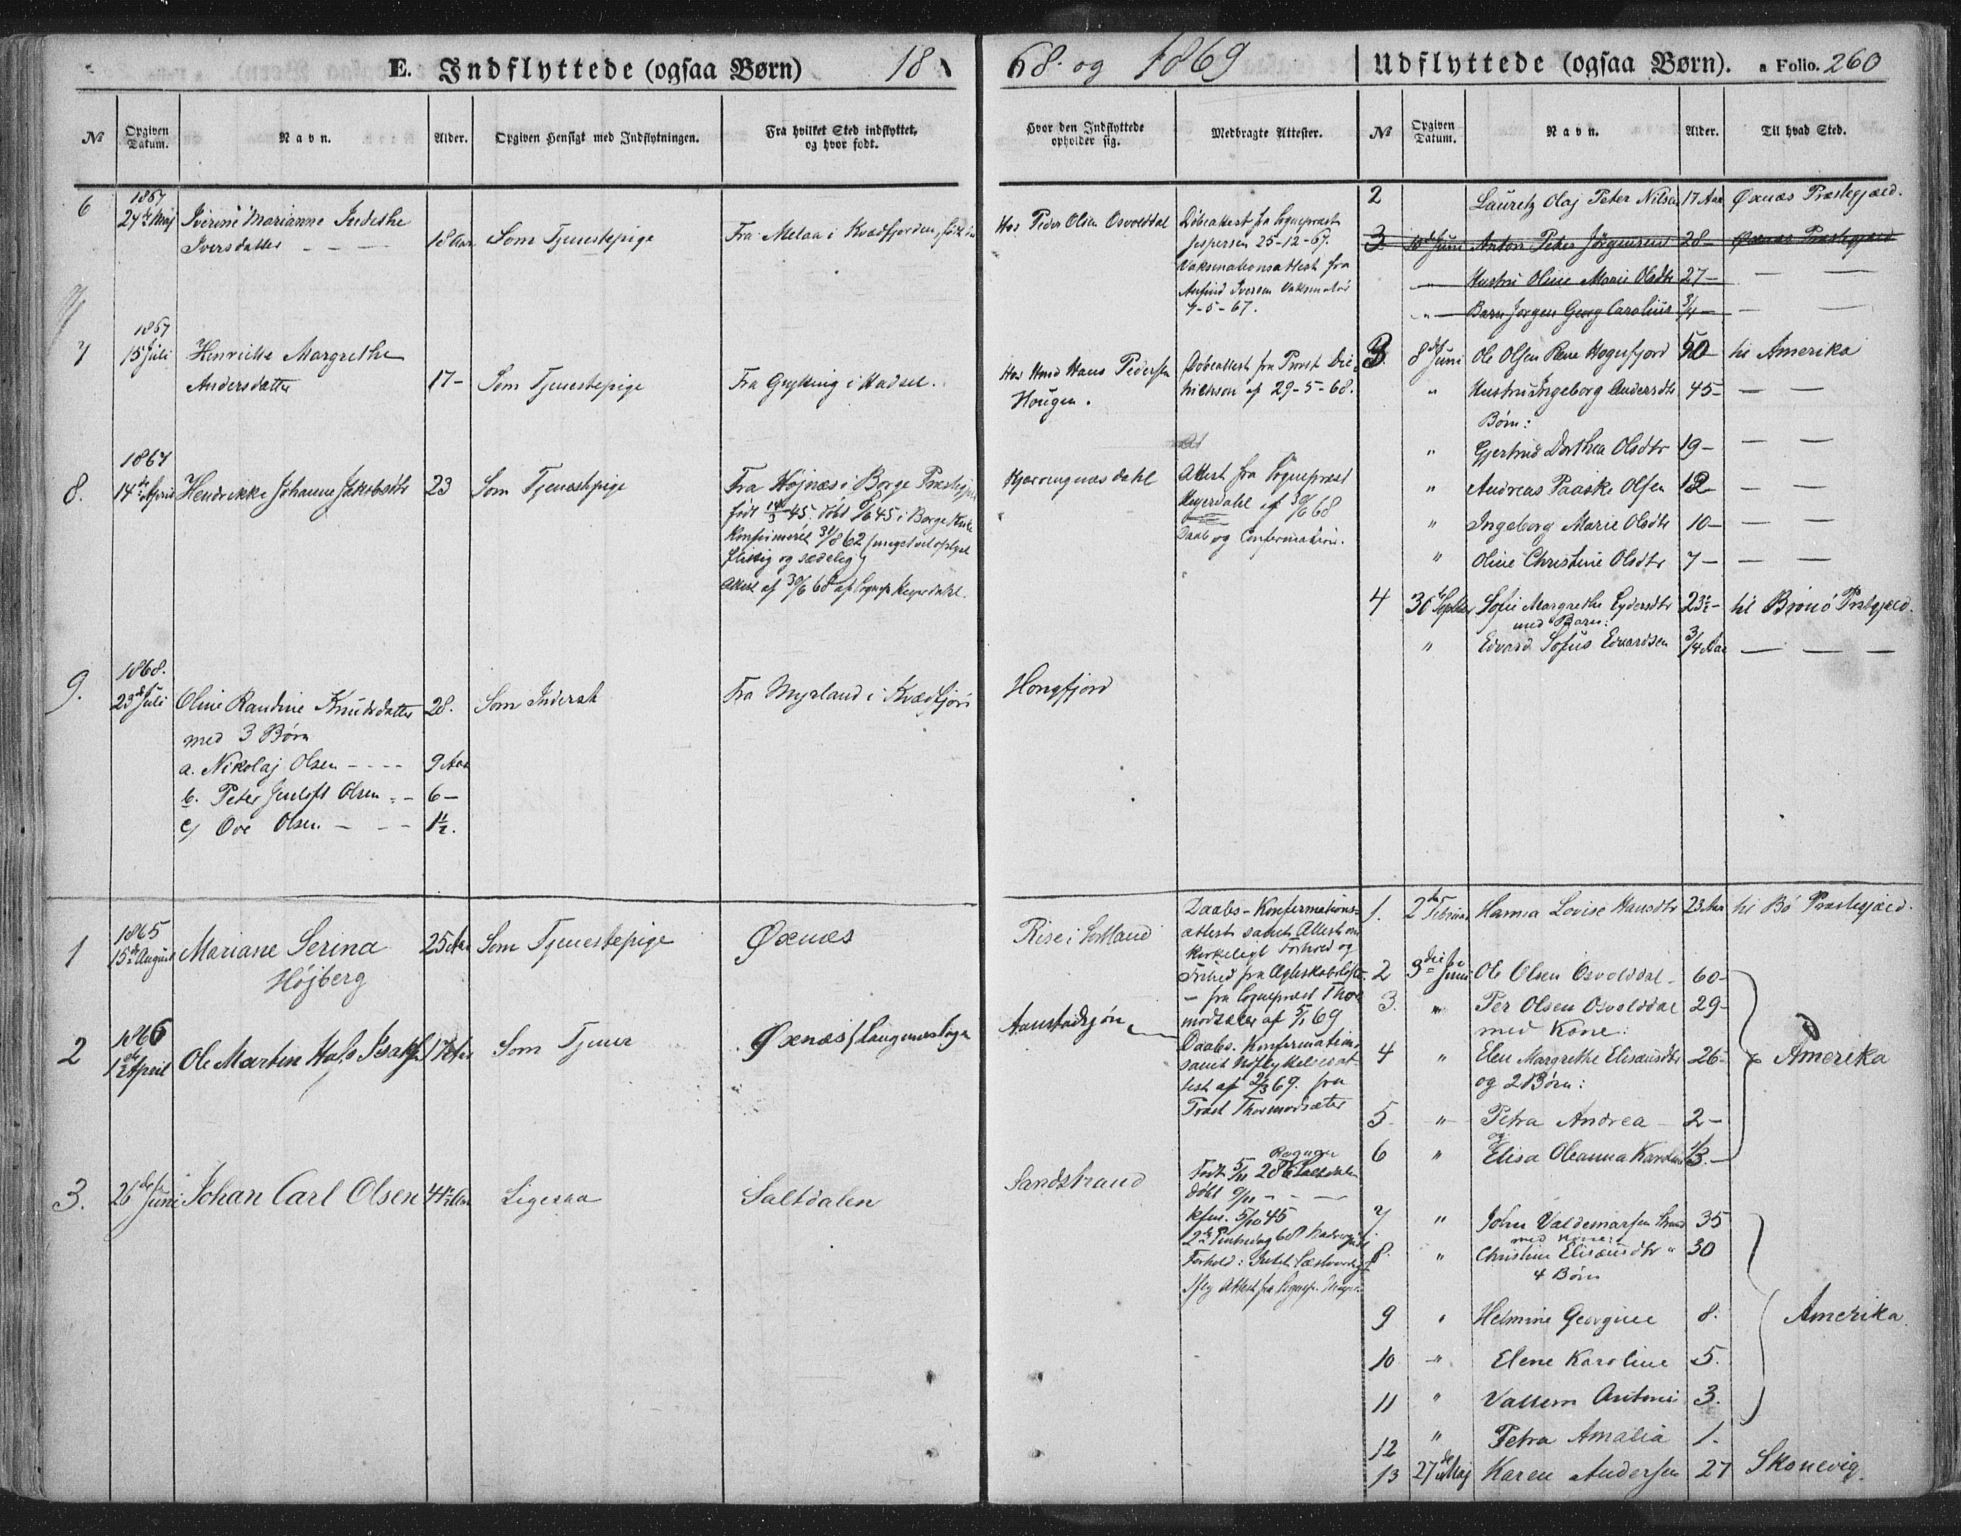 E. Indflyttede (ogsaa Børn) 18
68. og 1869 Udflyttede (ogsaa Børn). a Folio. 260
№ Opgiven Datum. Navn. Alder. Opgiven Hensigt med Indflytningen. Fra hvilket Sted indflyttet, og hvor født.
Hvor den Indflyttede opholder sig. Medbragte Attester. № Opgiven Datum. Navn. Alder. Til hvad Sted.
6 1867 24de Maj Marianne
Iversdatter 18 Aar Som Tjenestepige Fra Melaa i Kvædfjorden
Hos Peder Olsen Osvolddal
Døbeattest fra Sognepræst
Jespersen 25-12-67.
Vaksinationsattest fra
Iversen Vaksinatør
7-5-67.
7 1867 15 Juli Henrikke Margrethe
Andersdatter 17- Som Tjenestepige Fra Grytting i Hadsel.
Hans Pedersen
Hougen.
Døbeattest fra Provst
af 29-5-68.
8. 1867 14de April Hendrikke Johanne Jakobsdtr 23 Som Tjenestepige
Fra Højnæs i Borge Præstegj
født 14/3 45. døbt 8/6 45 i Borge Kirke
Konfirmeret 31/8 62
flittig og sædelig
Attest af 30/6 68 af Sognepr Heyerdahl.
Attest fra Sognepræst
Heyerdahl af 30/6 68
Daab og Confirmation.
9. 1868. 23de Juli Oline Randine Knudsdatter 28. Som Inderst Fra Myrland i Kvædfjord
Hongfjord
med 3 Børn
a. Nikolaj Olsen - - - - 9 Aar
b. Peter Olsen - - 6 -
c/ Ove Olsen. - - - 1½.
2 Lauretz Olaj Peter Nilsen 17 Aar Øxnæs Præstegjæld.
3 Juni Anton Peter Jørgensen 28- Øxnæs Præstegjæld
Hustru Oline Marie Olsdtr 27- — —
" Barn Jørgen Georg Carolius ¾ - — —
3 8de Juni Ole Olsen Hognfjord 50- til Amerika
" Hustru Ingeborg Andersdtr 45- — —
Børn:
" Gjertrud Dorthea Olsdtr 19- — —
" Andreas Paaske Olsen 12 — —
" Ingeborg Marie Olsdtr 10- — —
" Oline Christine Olsdtr 7- — —
4 30 Septbr Sofie Margrethe Eydersdtr 23½- til Brønø Præstgjæld.
med Barn:
" Edvard Sofus Edvardsen ¾ Aar — — —
1 1865 15de August Mariane Serina 25 Aar Som Tjenestepige Øxnæs
Højberg
Rise i Sortland
Daabs- Konfirmations-
attest samt Attest om
kirkeligt Forhold og
Frihed fra Ægteskabsløfte
- fra Sognepræst Thor
modsæter af 5/1 69
2 1866 1ste April Ole Martin Hals 17 Aar Som Tjener Øxnæs/Langenes Sogn
Daabs. Konfirmations
samt Udflyttelsesat
test af 2/3 69. fra
Præst Thormodsæter
3. 26de Juni Johan Carl Olsen Ligesaa Saltdalen
Sandstrand
Født 5/10 28
Døbt 9/10 - - -
kfm. 5/10 45
1. 2den Februar Hanna Lovise Hansdtr 23 Aar til Bø Præstegjæld.
2 3die Juni Ole Olsen Osvolddal - 60-
3. " Per Olsen Osvolddal 29-
med Kone:
4 " Elen Margrethe Elisæusdtr 26- Amerika
og 2 Børn:
5. " Petra Andrea - 2-
og
6 " Elisa Oleanna 1/3.
7. " John Valdemarsen 35
med Kone:
8. " Christine Elisæusdtr " 30
4 Børn
9 " Helmine Georgine 8. Amerika.
10 " Elene Karoline 5.
11 " Antoni 3.
12 " Petra Amalia 1.
13 27de Maj Karen Andersen 27 Skonevig.